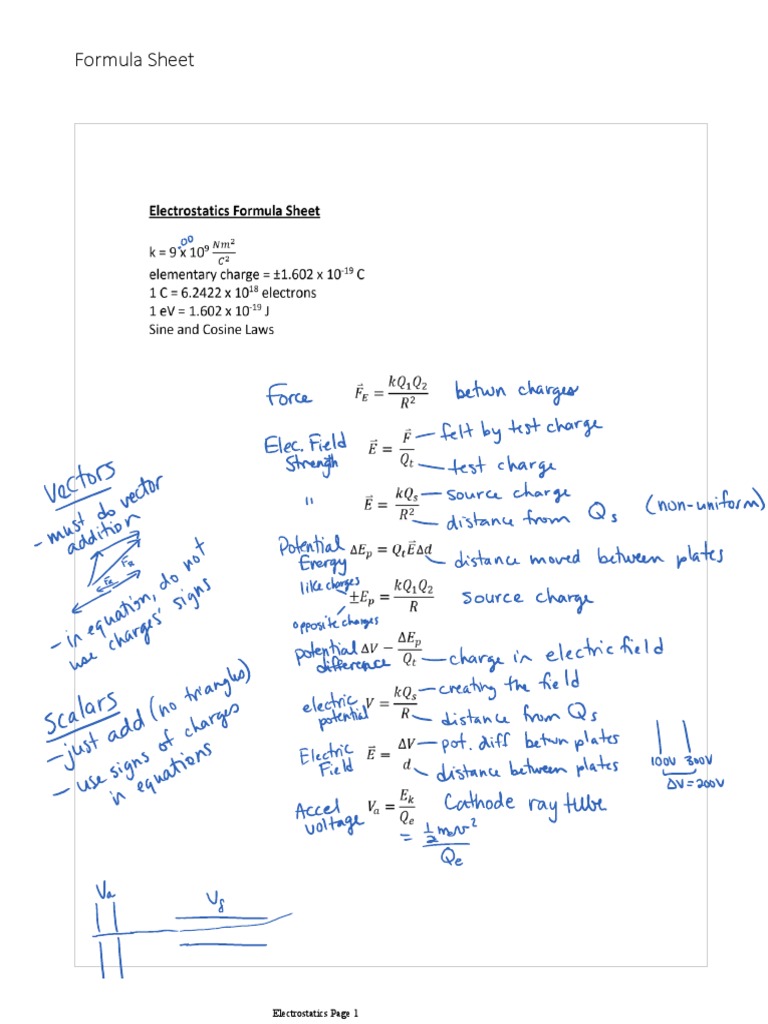 Formula Sheet
Electrostatics Formula Sheet
k = 9.00 x 10⁹ Nm²/C²
elementary charge = ±1.602 x 10⁻¹⁹ C
1 C = 6.2422 x 10¹⁸ electrons
1 eV = 1.602 x 10⁻¹⁹ J
Sine and Cosine Laws
Force F⃗_E = kQ₁Q₂/R² betwn charges
Elec. Field Strength E⃗ = F⃗/Q_t
felt by test charge
test charge
" E⃗ = kQ_s/R² (non-uniform)
source charge
distance from Q_s
Potential Energy ΔE_p = Q_tE⃗Δd distance moved between plates
like charges
opposite charges
±E_p = kQ₁Q₂/R source charge
potential difference ΔV − ΔE_p/Q_t charge in electric field
electric potential V = kQ_s/R
creating the field
distance from Q_s
Electric Field E⃗ = ΔV/d
pot. diff betwn plates
distance between plates
100V 300V
ΔV = 200V
Accel voltage V_a = E_k/Q_e Cathode ray tube
= ½m_ev²/Q_e
Vectors
- must do vector addition
F_R
F_E
- in equation, do not use charges' signs
Scalars
- just add (no triangles)
- use signs of charges in equations
V_a
Electrostatics Page 1